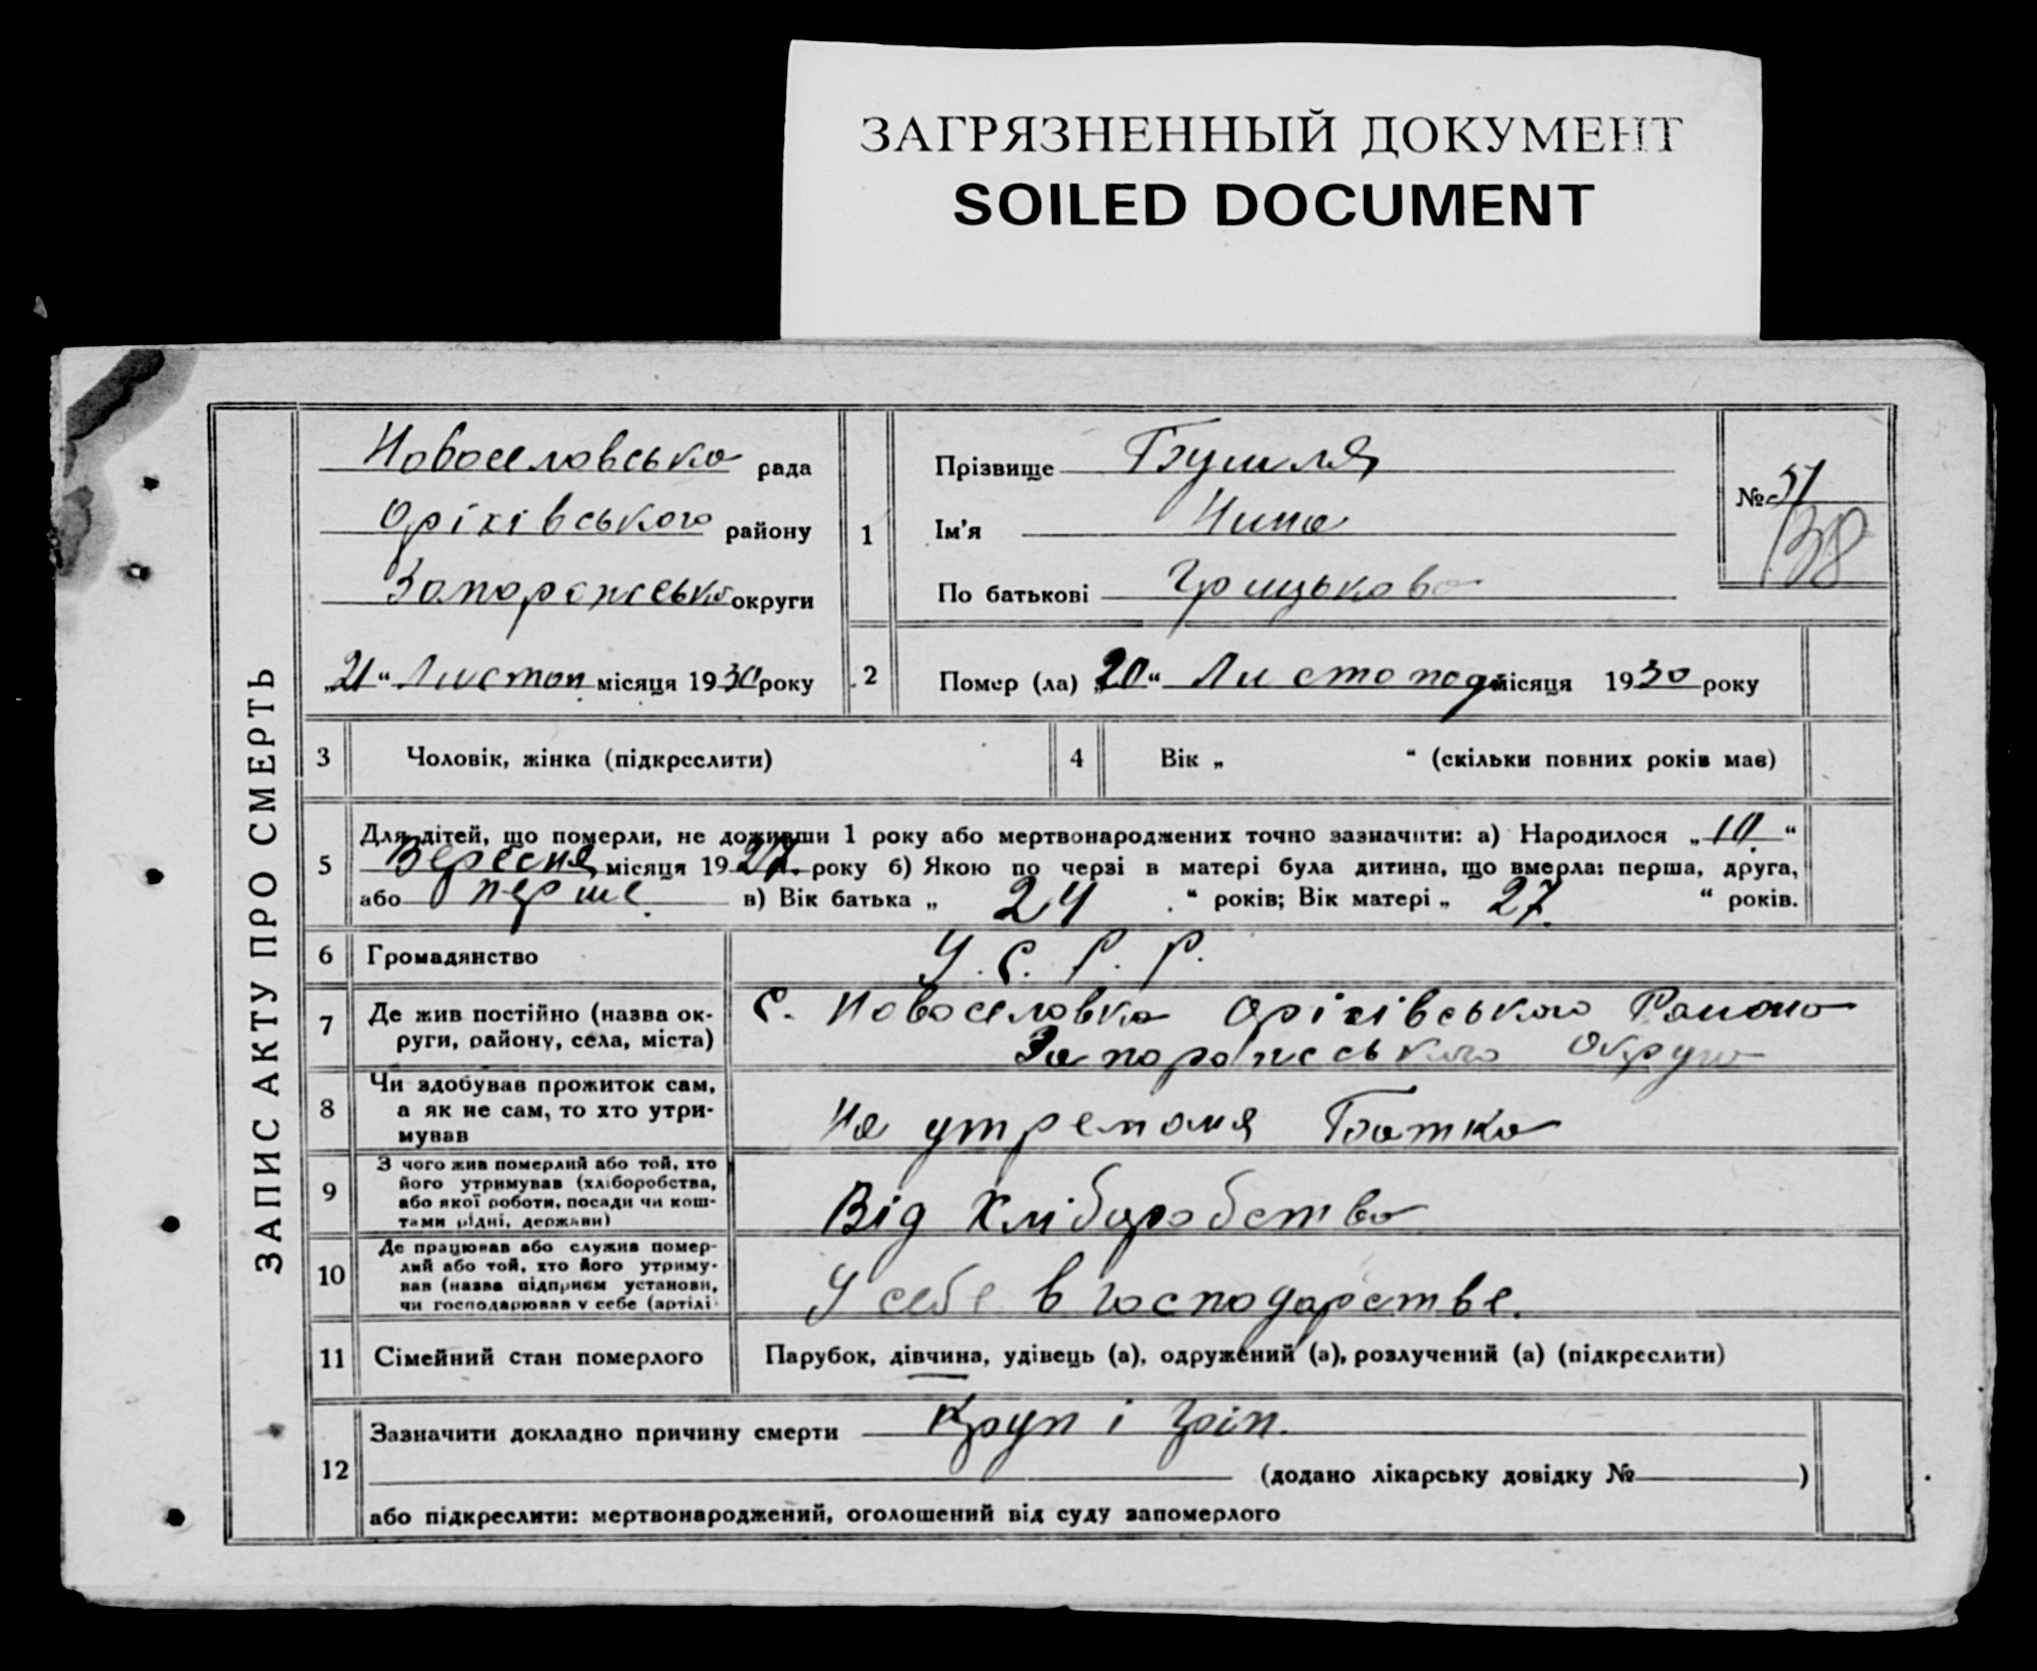 ЗАГРЯЗНЕННЫЙ ДОКУМЕНТ
SOILED DOCUMENT
ЗАПИС АКТУ ПРО СМЕРТЬ
Новоселовська рада
Оріхівського району
Запорожська округи
„21“ Листоп місяця 1930 року
1
Прізвище Бушля
Ім'я Нина
По батькові Грицькова
№ 51
138
2 Помер (ла) „20“ Листопод місяця 1930 року
3 Чоловік, жінка (підкреслити)
4 Вік „ “ (скільки повних років має)
5 Для дітей, що померли, не доживши 1 року або мертвонароджених точно зазначити: а) Народилося „10“
Вересня місяця 1927 року б) Якою по черзі в матері була дитина, що вмерла: перша, друга,
або перше в) Вік батька „ 24 “ років; Вік матері „ 27 “ років.
6 Громадянство У.С.Р.Р.
7 Де жив постійно (назва округи, району, села, міста)
С. Новоселовка Оріхівського Району
Запорожського Округа
8 Чи здобував прожиток сам, а як не сам, то хто утримував
На утреманя Батка
9 З чого жив померлий або той, хто його утримував (хліборобства, або якої роботи, посади чи коштами рідні, держави)
Від Хліборобства
10 Де працював або служив померлий або той, хто його утримував (назва підприєм установи, чи господарював у себе (артілі
У себе в господарстве.
11 Сімейний стан померлого
Парубок, дівчина, удівець (а), одружений (а), розлучений (а) (підкреслити)
12 Зазначити докладно причину смерти Круп і гріп.
(додано лікарську довідку № )
або підкреслити: мертвонароджений, оголошений від суду запомерлого